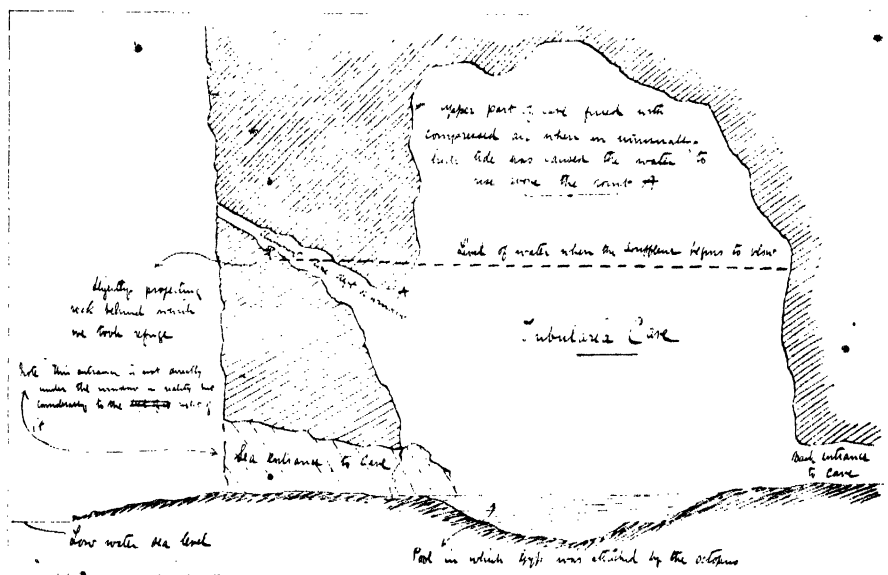 upper part of cave filled with
compressed air when an unusually
high tide has caused the water to
rise above the point A
Level of water when the Souffleur begins to blow
A
Slightly projecting
rock behind which
we took refuge
Tubularia Cave
Note This entrance is not directly
under the window in reality but
considerably to the right of
it
Sea entrance to Cave
Back entrance
to cave
Low water sea level
Pool in which Gyp was attacked by the octopus